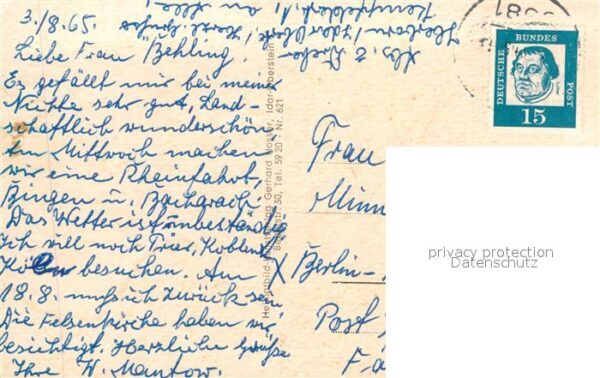 3./8.65.
Liebe Frau Behling,
Es gefällt mir bei meiner
Nichte sehr gut, Land-
schaftlich wunderschön
Am Mittwoch machen
wir eine Rheinfahrt,
Bingen u. Bacharach.
Das Wetter ist unbeständig
Ich will noch Trier, Koblenz
Köln besuchen. Am
18.8. muß ich zurück sein
Die Felsenkirche haben wir
besichtigt. Herzliche Grüße
Ihre W. Mantow.
Abs.
an Alle!
Gerhard Mosser, Idar-Oberstein
30, Tel. 5920 Nr. 621
DEUTSCHE BUNDES POST
15
Frau
Berlin-
Post
privacy protection
Datenschutz